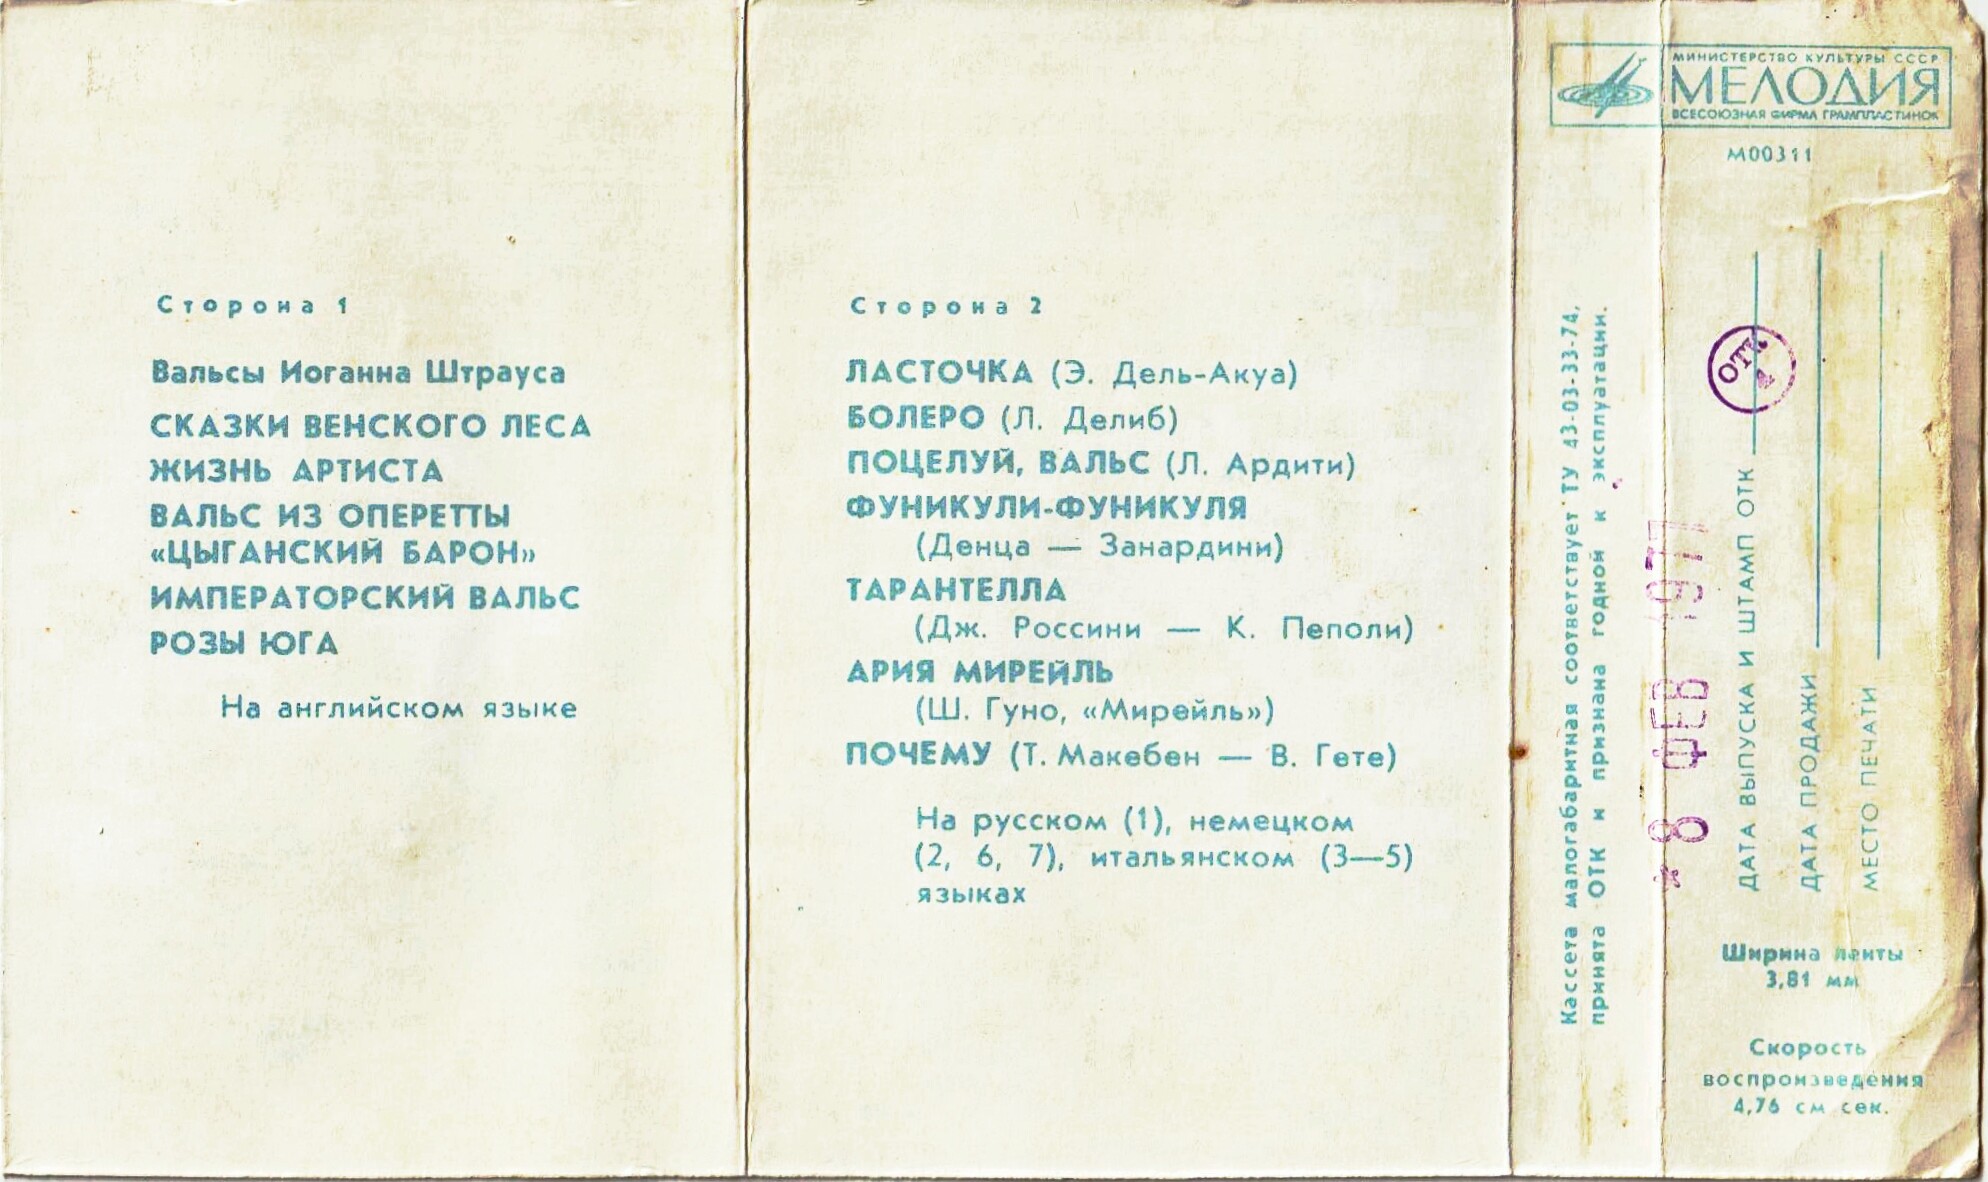 Сторона 1
Вальсы Иоганна Штрауса
СКАЗКИ ВЕНСКОГО ЛЕСА
ЖИЗНЬ АРТИСТА
ВАЛЬС ИЗ ОПЕРЕТТЫ
«ЦЫГАНСКИЙ БАРОН»
ИМПЕРАТОРСКИЙ ВАЛЬС
РОЗЫ ЮГА
На английском языке
Сторона 2
ЛАСТОЧКА (Э. Дель-Акуа)
БОЛЕРО (Л. Делиб)
ПОЦЕЛУЙ, ВАЛЬС (Л. Ардити)
ФУНИКУЛИ-ФУНИКУЛЯ
(Денца — Занардини)
ТАРАНТЕЛЛА
(Дж. Россини — К. Пеполи)
АРИЯ МИРЕЙЛЬ
(Ш. Гуно, «Мирейль»)
ПОЧЕМУ (Т. Макебен — В. Гете)
На русском (1), немецком
(2, 6, 7), итальянском (3—5)
языках
Кассета малогабаритная соответствует ТУ 43-03-33-74,
принята ОТК и признана годной к эксплуатации.
* 8 ФЕВ 1977
МИНИСТЕРСТВО КУЛЬТУРЫ СССР
МЕЛОДИЯ
ВСЕСОЮЗНАЯ ФИРМА ГРАМПЛАСТИНОК
М00311
ОТК
4
ДАТА ВЫПУСКА И ШТАМП ОТК
ДАТА ПРОДАЖИ
МЕСТО ПЕЧАТИ
Ширина ленты
3,81 мм
Скорость
воспроизведения
4,76 см сек.